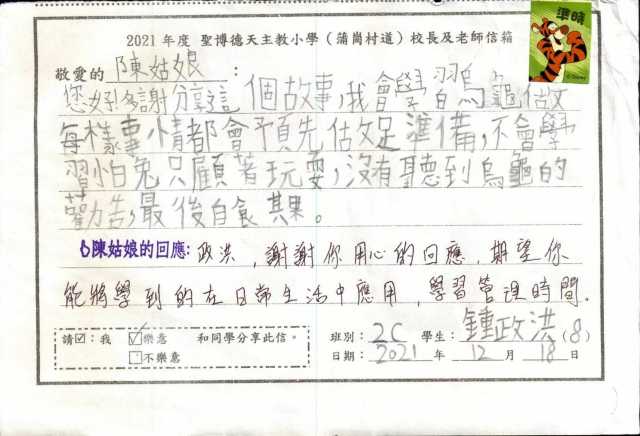 準時
© Disney
2021 年度 聖博德天主教小學(蒲崗村道)校長及老師信箱
敬愛的 陳姑娘 :
您好!多謝分享這個故事,我會學習烏龜做
每樣事情都會預先做足準備,不會學
習白兔只顧著玩耍,沒有聽到烏龜的
勸告,最後自食其果。
陳姑娘的回應: 政洪,謝謝你用心的回應,期望你
能將學到的在日常生活中應用,學習管理時間.
請☑:我 ☑樂意 和同學分享此信。
□不樂意
班別: 2C 學生: 鍾政洪 (8)
日期: 2021 年 12 月 18 日